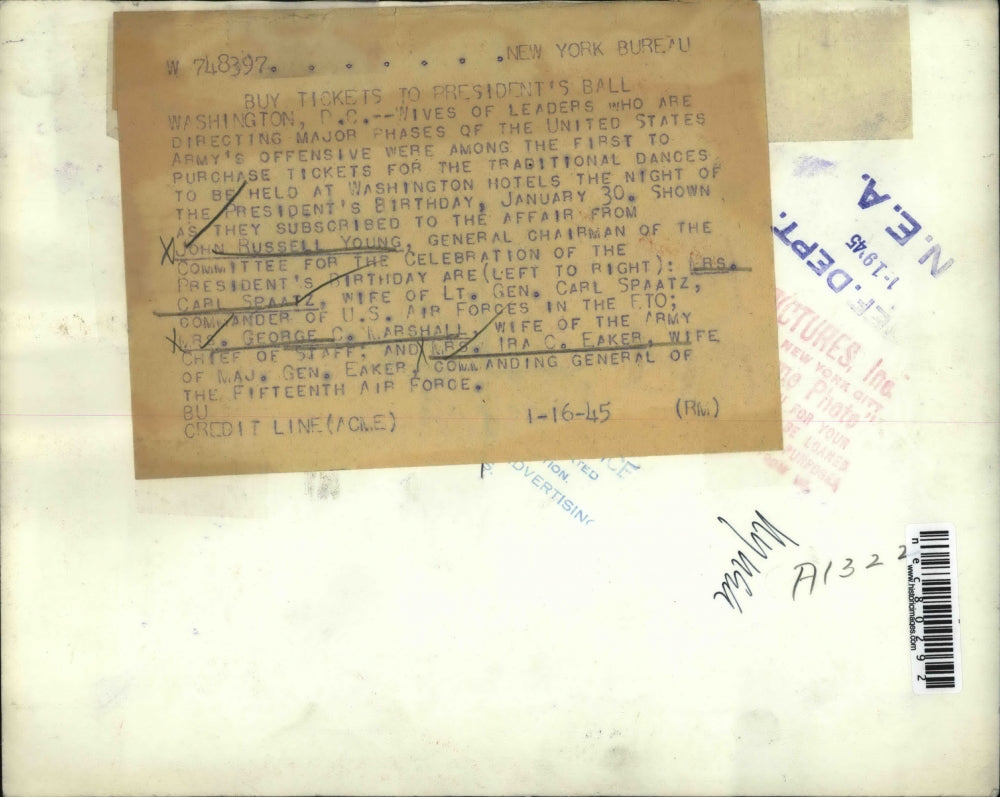 W 748397. . . . . . . .NEW YORK BUREAU
BUY TICKETS TO PRESIDENT'S BALL
WASHINGTON, D.C.--WIVES OF LEADERS WHO ARE
DIRECTING MAJOR PHASES OF THE UNITED STATES
ARMY'S OFFENSIVE WERE AMONG THE FIRST TO
PURCHASE TICKETS FOR THE TRADITIONAL DANCES
TO BE HELD AT WASHINGTON HOTELS THE NIGHT OF
THE PRESIDENT'S BIRTHDAY, JANUARY 30. SHOWN
AS THEY SUBSCRIBED TO THE AFFAIR FROM
X JOHN RUSSELL YOUNG, GENERAL CHAIRMAN OF THE
COMMITTEE FOR THE CELEBRATION OF THE
PRESIDENT'S BIRTHDAY ARE (LEFT TO RIGHT): MRS.
CARL SPAATZ, WIFE OF LT. GEN. CARL SPAATZ,
COMMANDER OF U.S. AIR FORCES IN THE ETO;
X MRS. GEORGE C. MARSHALL, WIFE OF THE ARMY
CHIEF OF STAFF; AND X MRS. IRA C. EAKER, WIFE
OF MAJ. GEN. EAKER, COMMANDING GENERAL OF
THE FIFTEENTH AIR FORCE.
BU
CREDIT LINE (ACME) 1-16-45 (RM)
DEPT.
1-1945
N.E.A.
PICTURES, Inc.
NEW YORK CITY
Photo"
FOR YOUR
BE LOANED
ADVERTISING
A1322
nec80292
www.historicimages.com